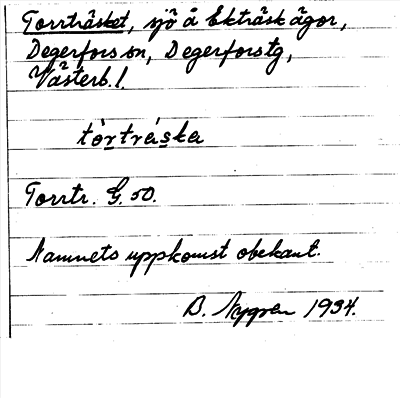 Torrträsket, sjö å Ekträsk ägor,
Degerfors sn, Degerforstg,
Västerb. l.
tòrtráska
Torrtr. G. 50.
Namnets uppkomst obekant.
B. Nygren 1934.